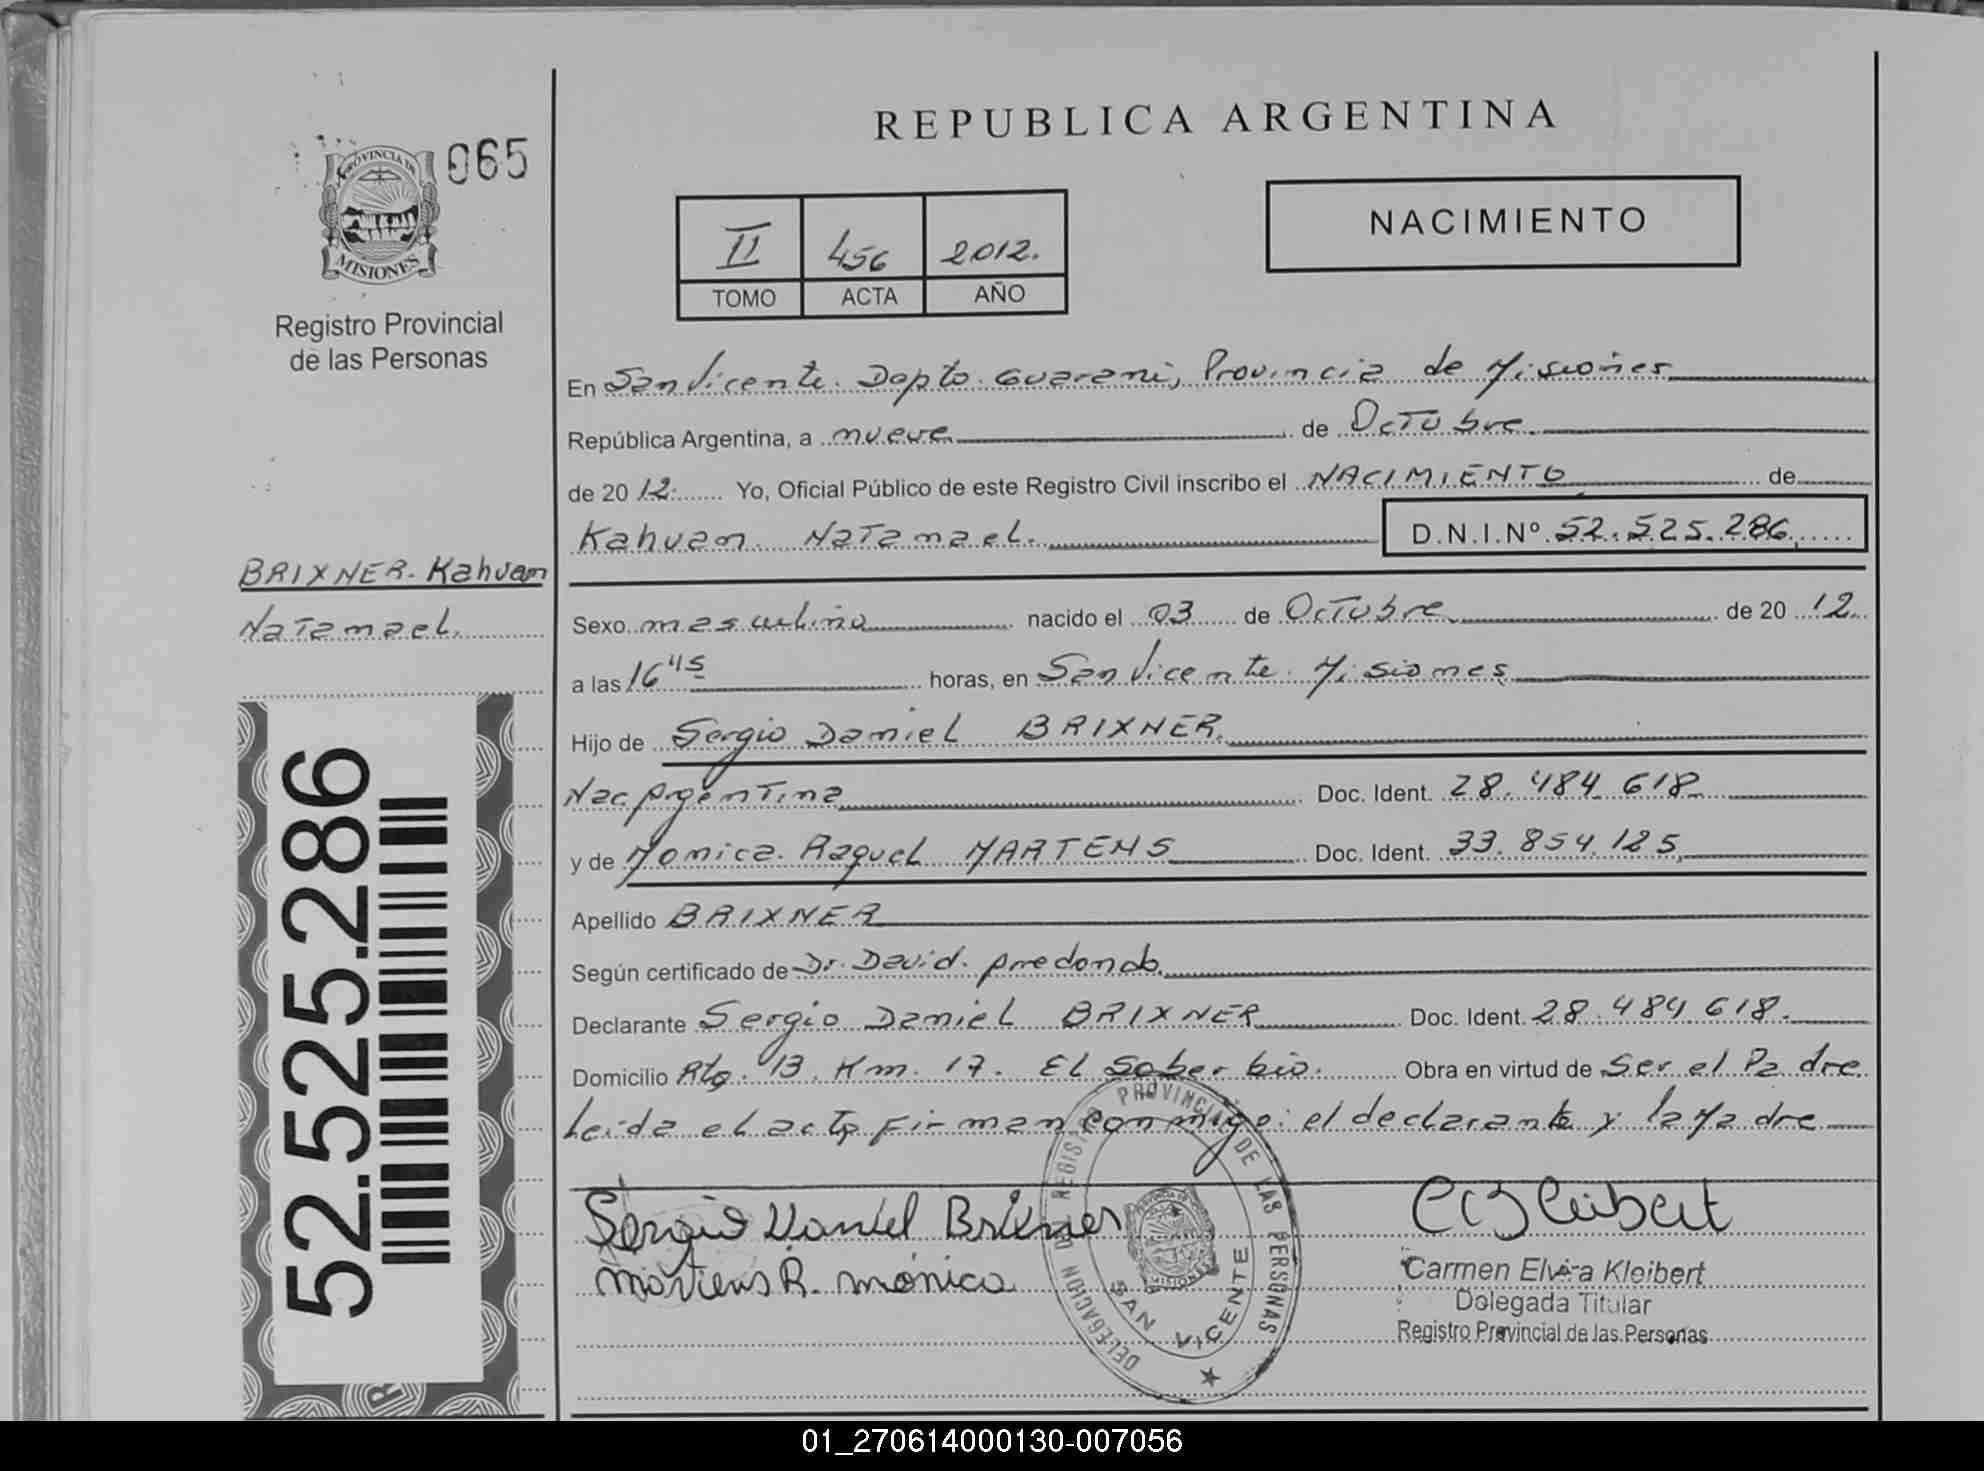 065
PROVINCIA DE
MISIONES
Registro Provincial
de las Personas
BRIXNER. Kahuan
Natanael.
52.525.286
REPUBLICA ARGENTINA
II 456 2012.
TOMO ACTA AÑO
NACIMIENTO
En San Vicente. Dopto. Guarani, Provincia de Misiones
República Argentina, a nueve de Octubre
de 20 12. Yo, Oficial Público de este Registro Civil inscribo el NACIMIENTO de
Kahuan Natanael. D.N.I.Nº 52.525.286
Sexo masculino nacido el 03 de Octubre de 20 12.
a las 16 45 horas, en San Vicente. Misiones
Hijo de Sergio Daniel BRIXNER.
Nac. Argentina Doc. Ident. 28.484.618
y de Monica Raquel MARTENS Doc. Ident. 33.854.125
Apellido BRIXNER
Según certificado de Dr. David Arredondo.
Declarante Sergio Daniel BRIXNER Doc. Ident. 28.484.618.
Domicilio Rta. 13. Km. 17. El Soberbio. Obra en virtud de Ser el Padre
Leida el acta firman conmigo: el declarante y la Madre
Sergio Daniel Brixner
Martens R. mónica
DELEGACION DE REGISTRO PROVINCIAL DE LAS PERSONAS
SAN VICENTE
MISIONES
C E Kleibert
Carmen Elvira Kleibert
Delegada Titular
Registro Provincial de las Personas
01_270614000130-007056